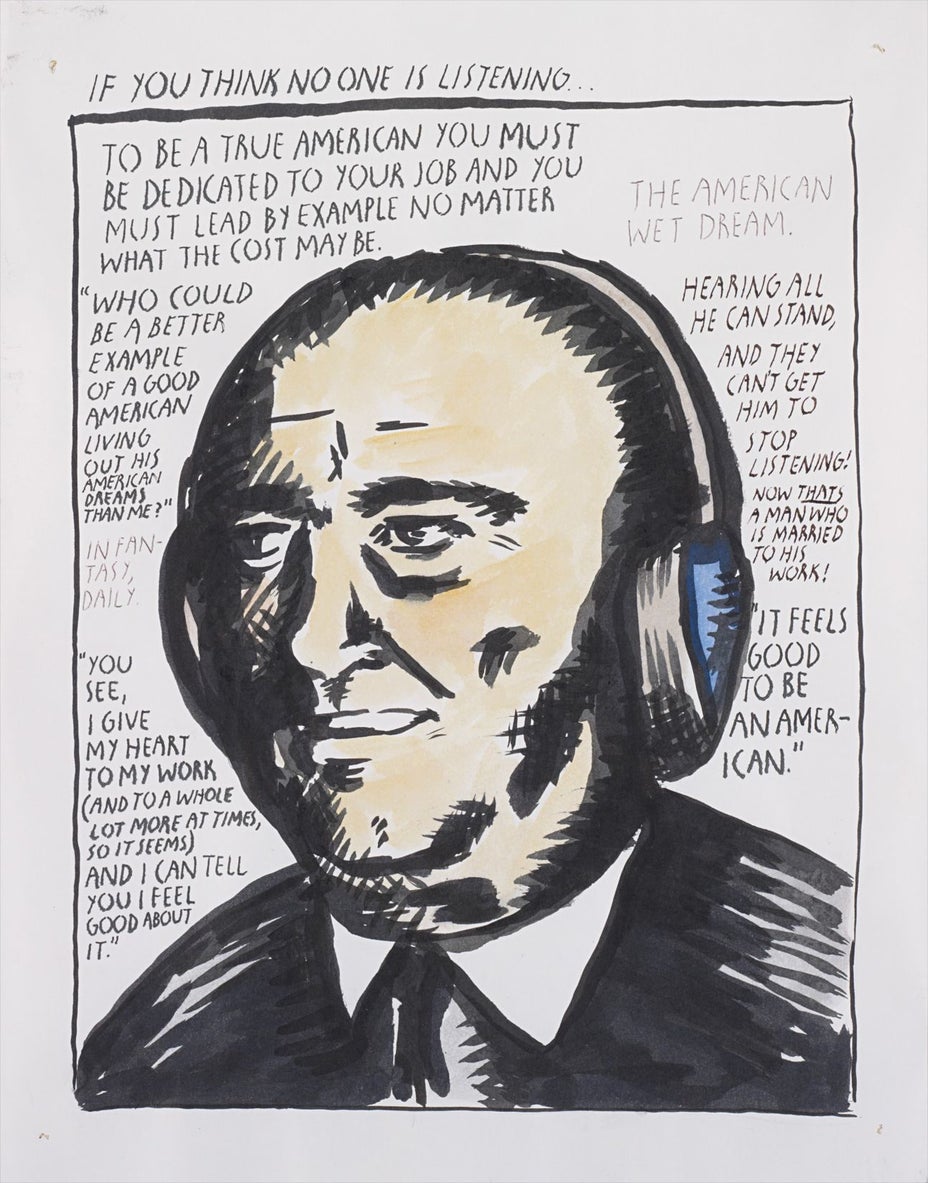 IF YOU THINK NO ONE IS LISTENING...
TO BE A TRUE AMERICAN YOU MUST
BE DEDICATED TO YOUR JOB AND YOU
MUST LEAD BY EXAMPLE NO MATTER
WHAT THE COST MAY BE.
THE AMERICAN
WET DREAM.
"WHO COULD
BE A BETTER
EXAMPLE
OF A GOOD
AMERICAN
LIVING
OUT HIS
AMERICAN
DREAMS
THAN ME?"
IN FAN-
TASY,
DAILY.
"YOU
SEE,
I GIVE
MY HEART
TO MY WORK
(AND TO A WHOLE
LOT MORE AT TIMES,
SO IT SEEMS)
AND I CAN TELL
YOU I FEEL
GOOD ABOUT
IT."
HEARING ALL
HE CAN STAND,
AND THEY
CAN'T GET
HIM TO
STOP
LISTENING!
NOW THATS
A MAN WHO
IS MARRIED
TO HIS
WORK!
"IT FEELS
GOOD
TO BE
AN AMER-
ICAN."